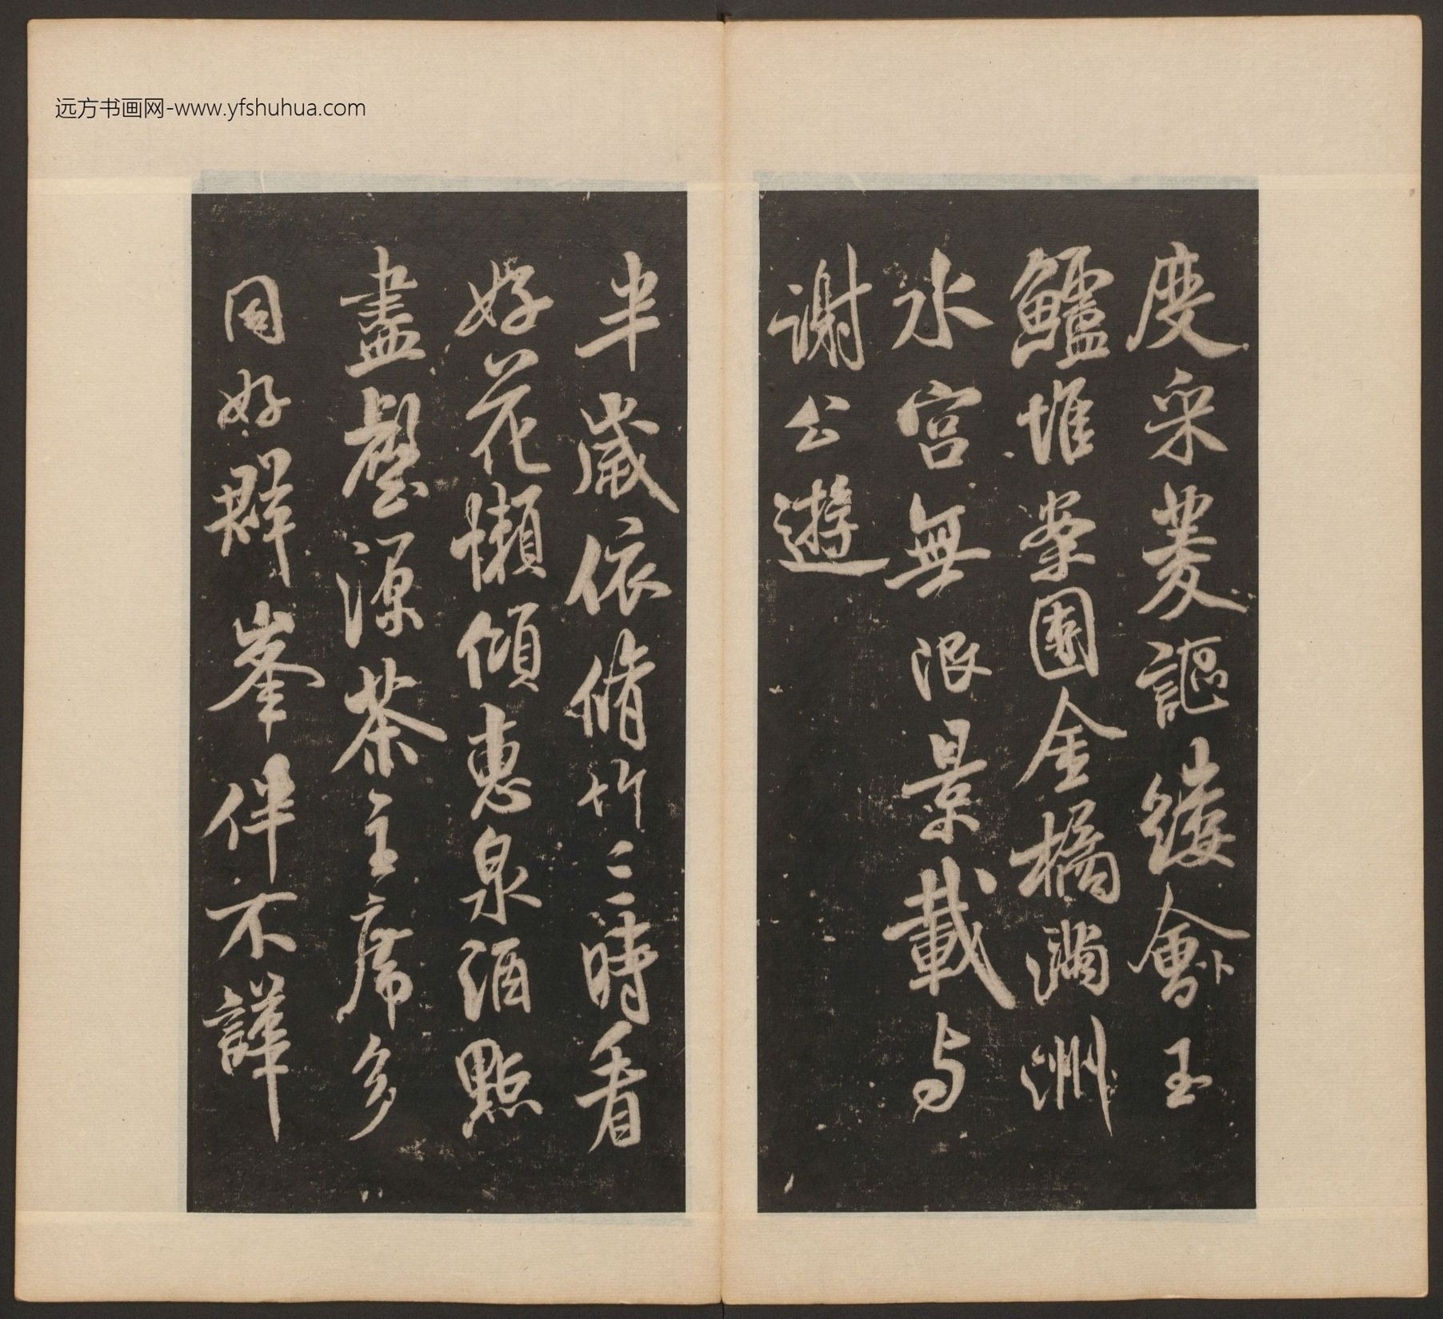 远方书画网-www.yfshuhua.com
度采菱謳縷會玉
鱸堆案團金橘滿洲
水宮無限景載与
謝公遊
半歲依脩竹三時看
好花懶傾惠泉酒點
盡壑源茶主席多
同好群峯伴不譁